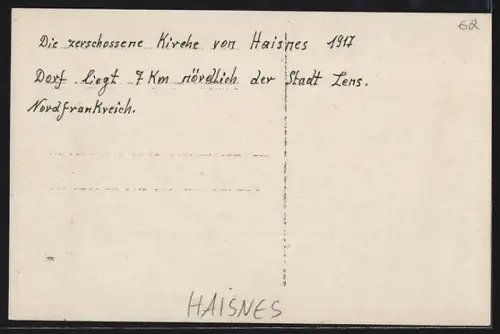 62
Die zerschossene Kirche von Haisnes 1917
Dorf liegt 7 Km nördlich der Stadt Lens.
Nordfrankreich.
HAISNES